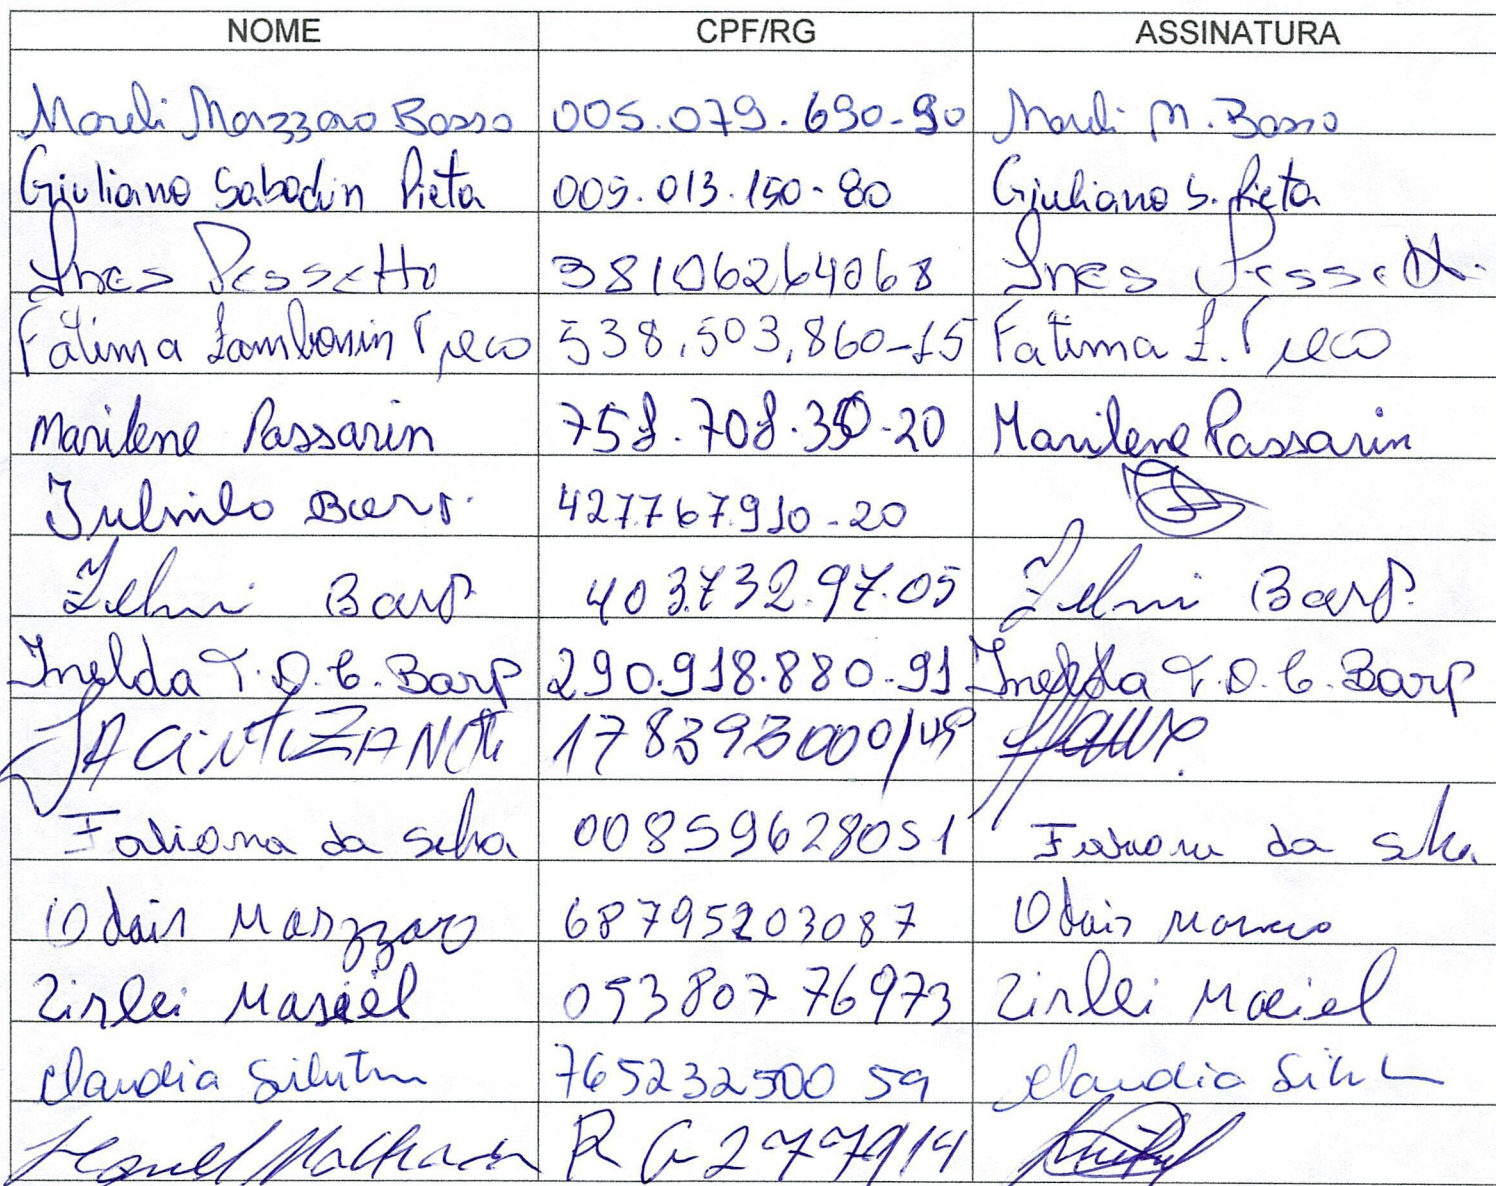 NOME CPF/RG ASSINATURA
Mareli Mazzaro Basso 005.079.690-90 Mareli M. Basso
Giuliano Sabadin Pieta 005.013.150-80 Giuliano S. Pieta
Ines Pessetto 38106264068 Ines Pessett
Fátima Zambonin Treco 538,503,860-15 Fatima Z. Treco
Marilene Passarin 758.708.350-20 Marilene Passarin
Barp. 427767.910-20
Zelni Barp 403.732.97.05 Zelni Barp.
Inelda T.D.C. Barp 290.918.880-91 Inelda T.D.C. Barp
178393000/49
Fabiana da Silva 00859628051 Fabiana da Silva
Odair Mazzaro 68795203087 Odair
Zirlei Maciel 05380776973 Zirlei Maciel
Claudia 76523250059 Claudia
Machado RG 277914